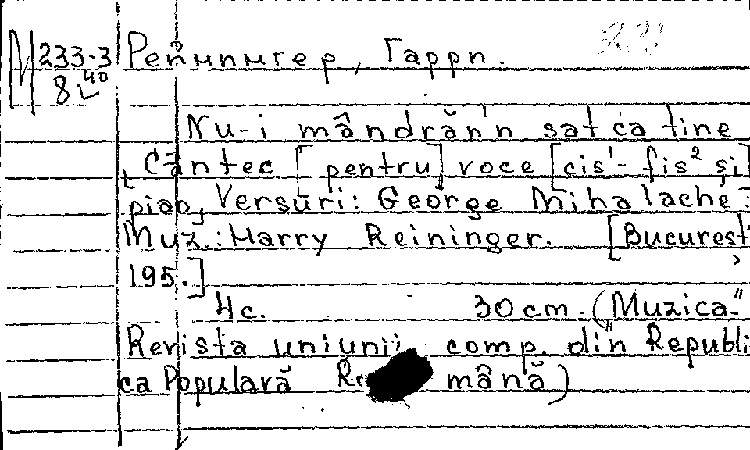 М 233-3 Рейнингер, Гарри.
8 40
Nu-i mândrăn'n sat ca tine
Cântec [pentru] voce [cis¹-fis² şi]
piao, Versuri: George Mihalache.
Muz.: Harry Reininger. [Bucureşt
195.]
4c. 30 cm. (Muzica."
Revista uniunii comp. din" Republi
ca Populară mână)